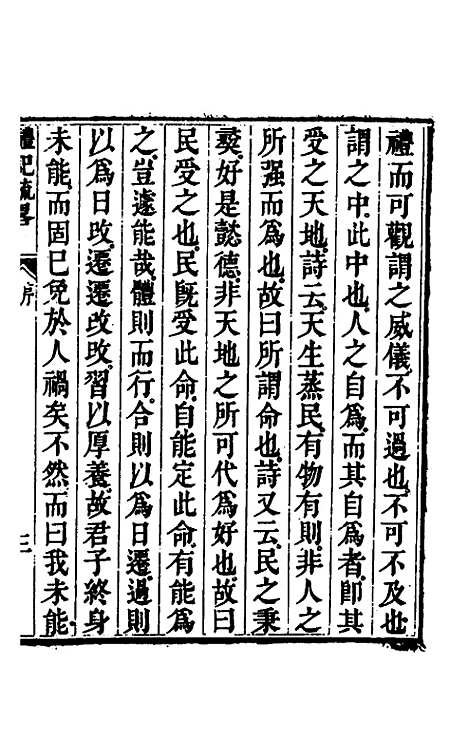 禮而可觀謂之威儀不可過也不可不及也
謂之中此中也人之自爲而其自爲者卽其
受之天地詩云天生蒸民有物有則非人之
所强而爲也故曰所謂命也詩又云民之秉
彛好是懿德非天地之所可代爲好也故曰
民受之也民旣受此命自能定此命有能爲
之豈遽能哉體則而行合則以爲日遷過則
以爲日改遷遷改改習以厚養故君子終身
未能而固已免於人禍矣不然而曰我未能
禮記疏畧
序
三